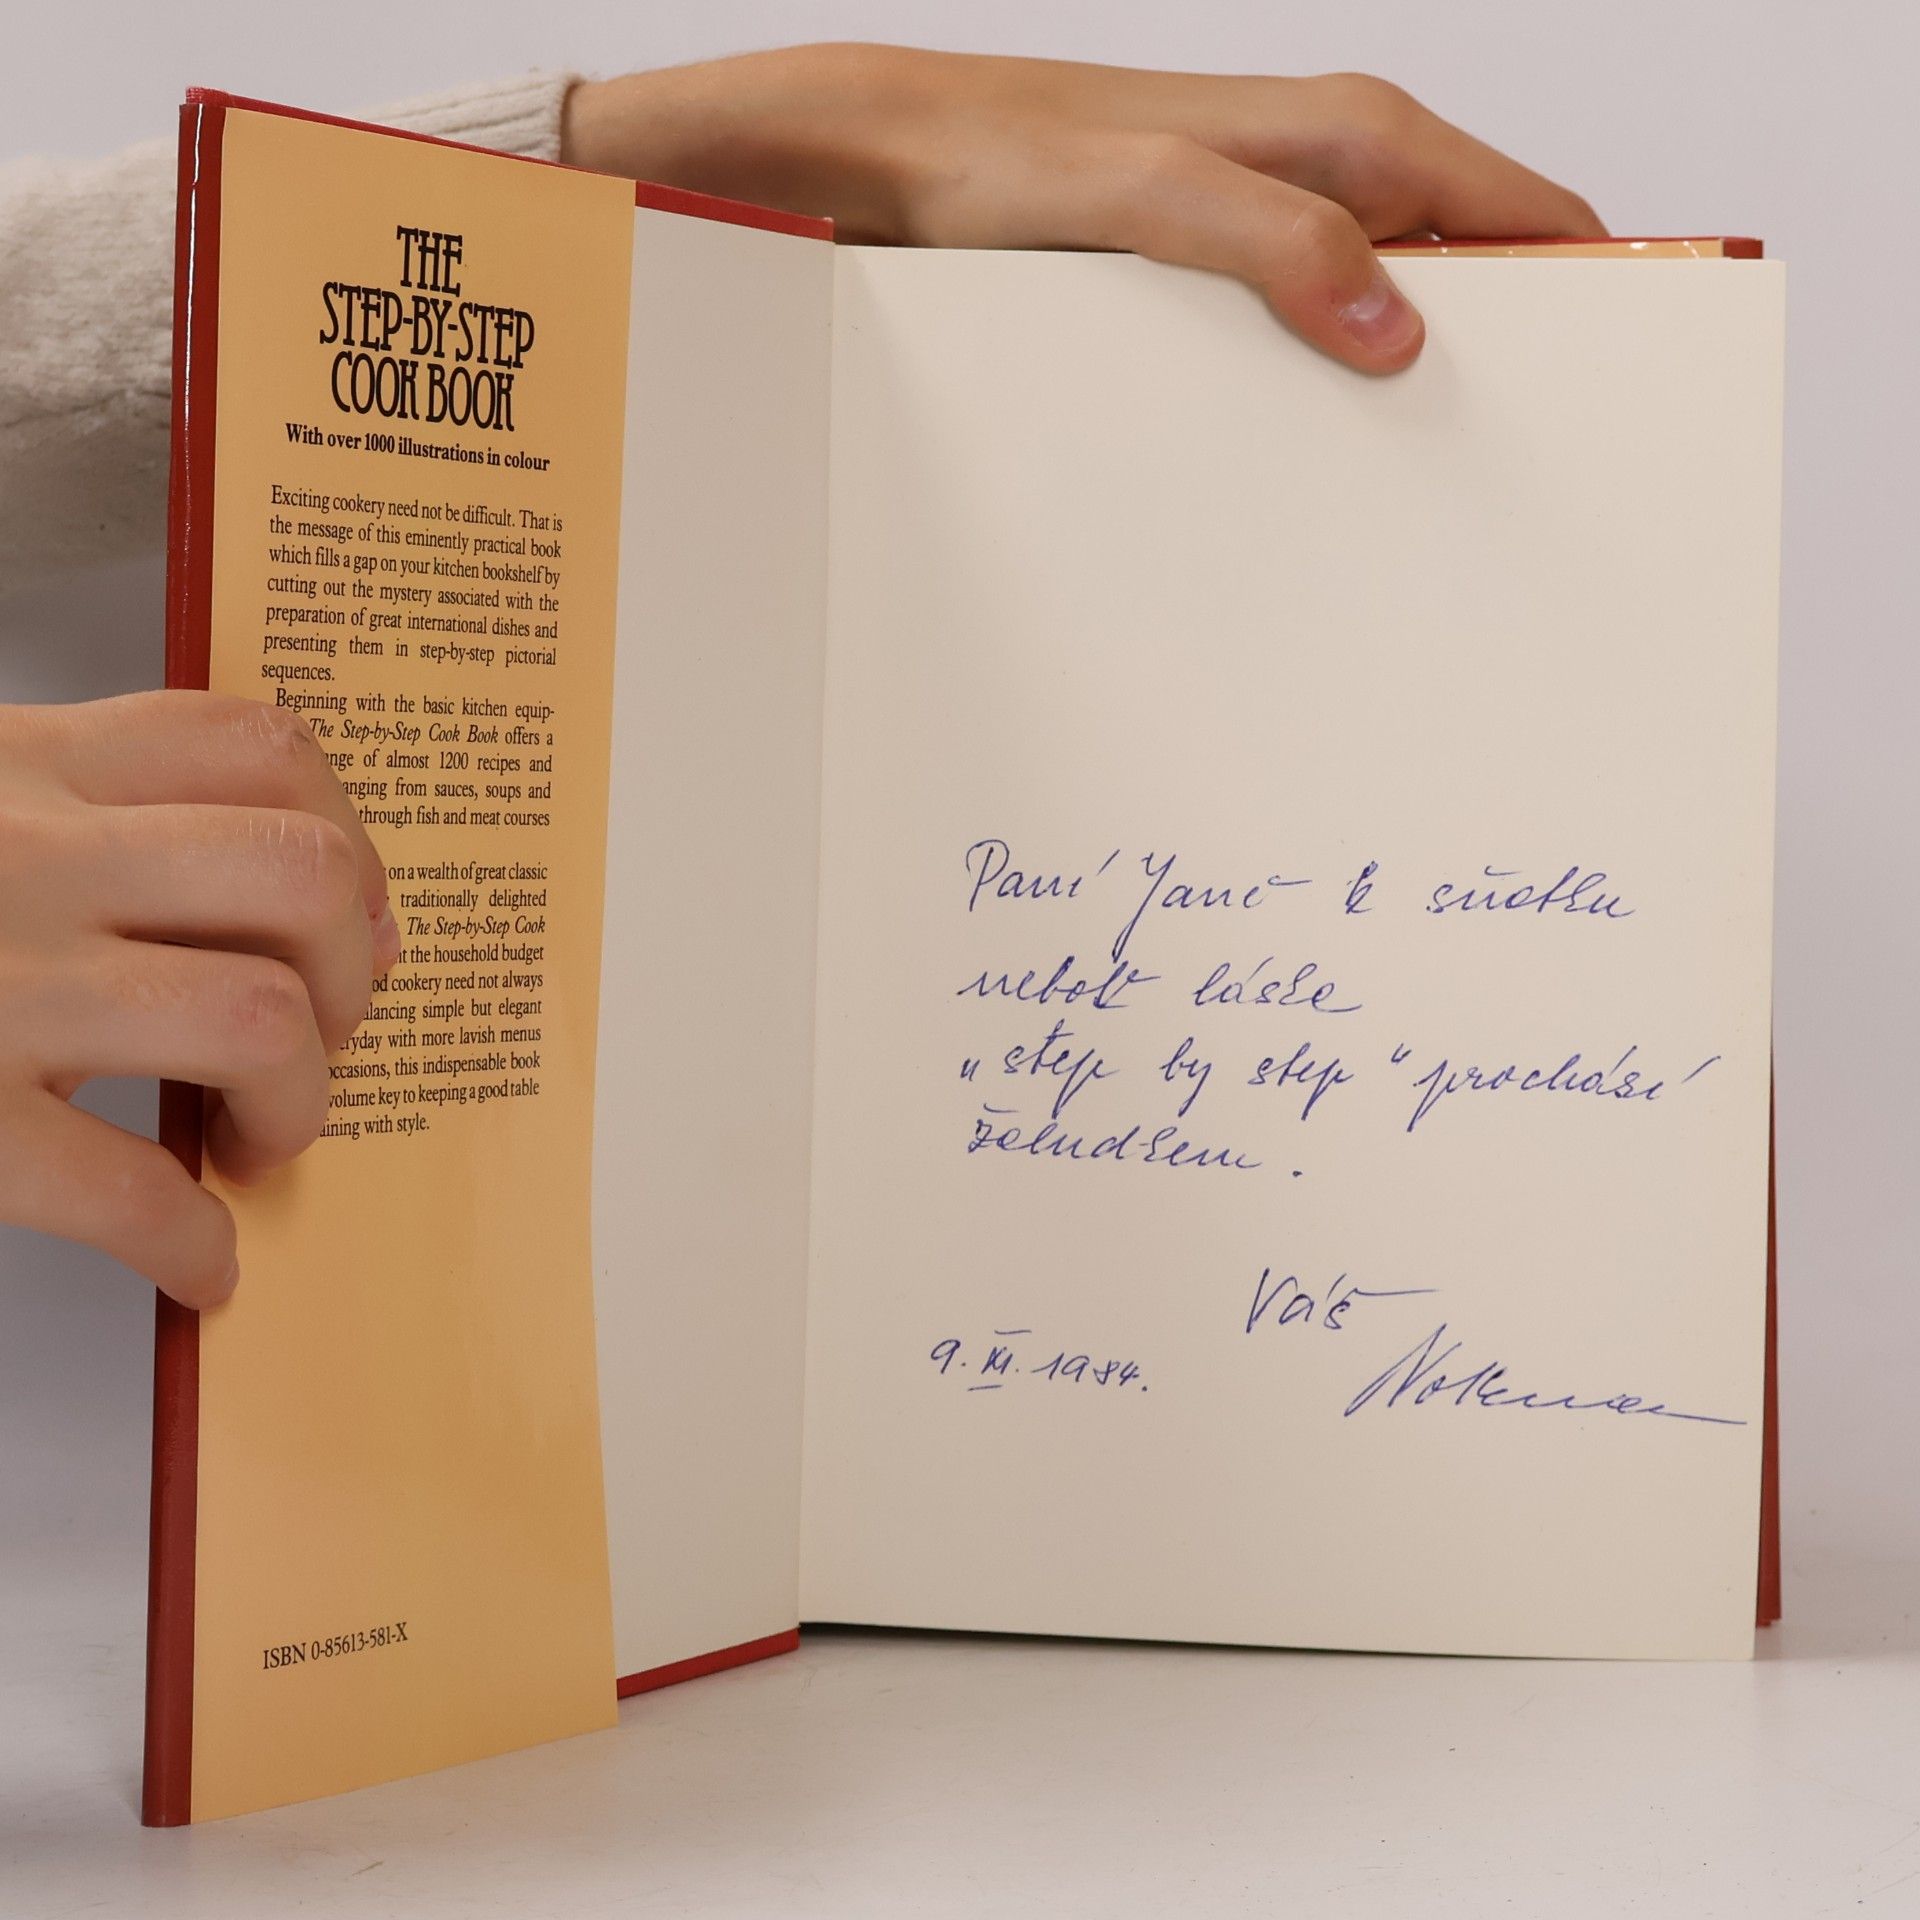 THE
STEP-BY-STEP
COOK BOOK
With over 1000 illustrations in colour
Exciting cookery need not be difficult. That is
the message of this eminently practical book
which fills a gap on your kitchen bookshelf by
cutting out the mystery associated with the
preparation of great international dishes and
presenting them in step-by-step pictorial
sequences.
Beginning with the basic kitchen equip-
The Step-by-Step Cook Book offers a
of almost 1200 recipes and
from sauces, soups and
through fish and meat courses
on a wealth of great classic
traditionally delighted
The Step-by-Step Cook
the household budget
cookery need not always
simple but elegant
with more lavish menus
this indispensable book
volume key to keeping a good table
with style.
ISBN 0-85613-581-X
Paní Janě k sňatku
neboť láska
„step by step“ prochází
žaludkem.
Váš
9. XI. 1984.